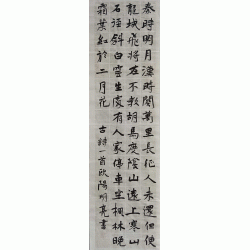 秦時明月漢時關萬里長征人未還但使
龍城飛將在不教胡馬度陰山遠上寒山
石徑斜白雲生處有人家停車坐楓林晚
霜葉紅於二月花 古詩一首歐陽明亮書